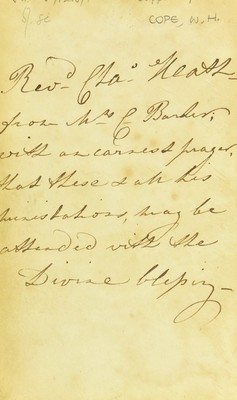 COPE, W.H.
Revd Chas Heath
from Mrs C Barker,
with an earnest prayer,
that these & all his
ministations, may be
attended with the
Divine blessing